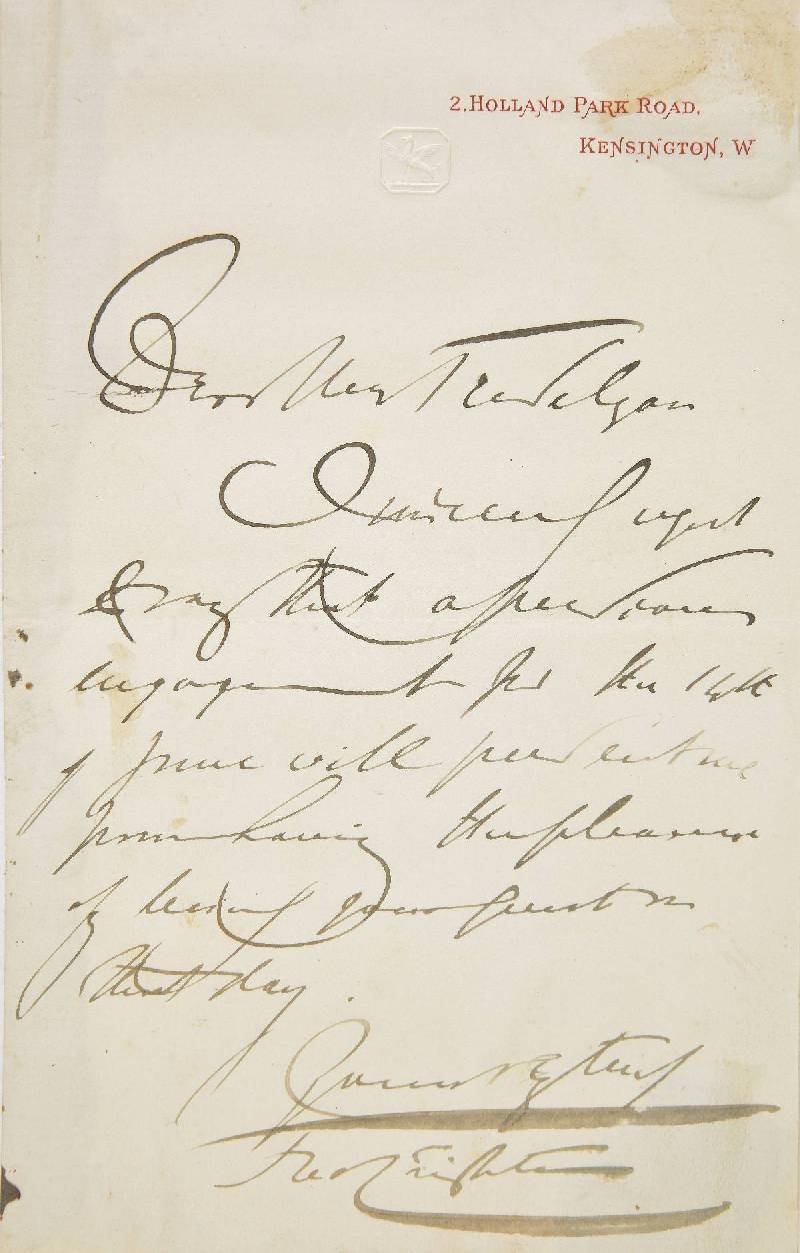 2, HOLLAND PARK ROAD,
KENSINGTON, W
Dear Mrs Trevelyan
I sincerely regret
to say that a previous
engagement for the 14th
of June will prevent me
from having the pleasure
of being your guest on
that day.
Yours vy truly
Fred Leighton